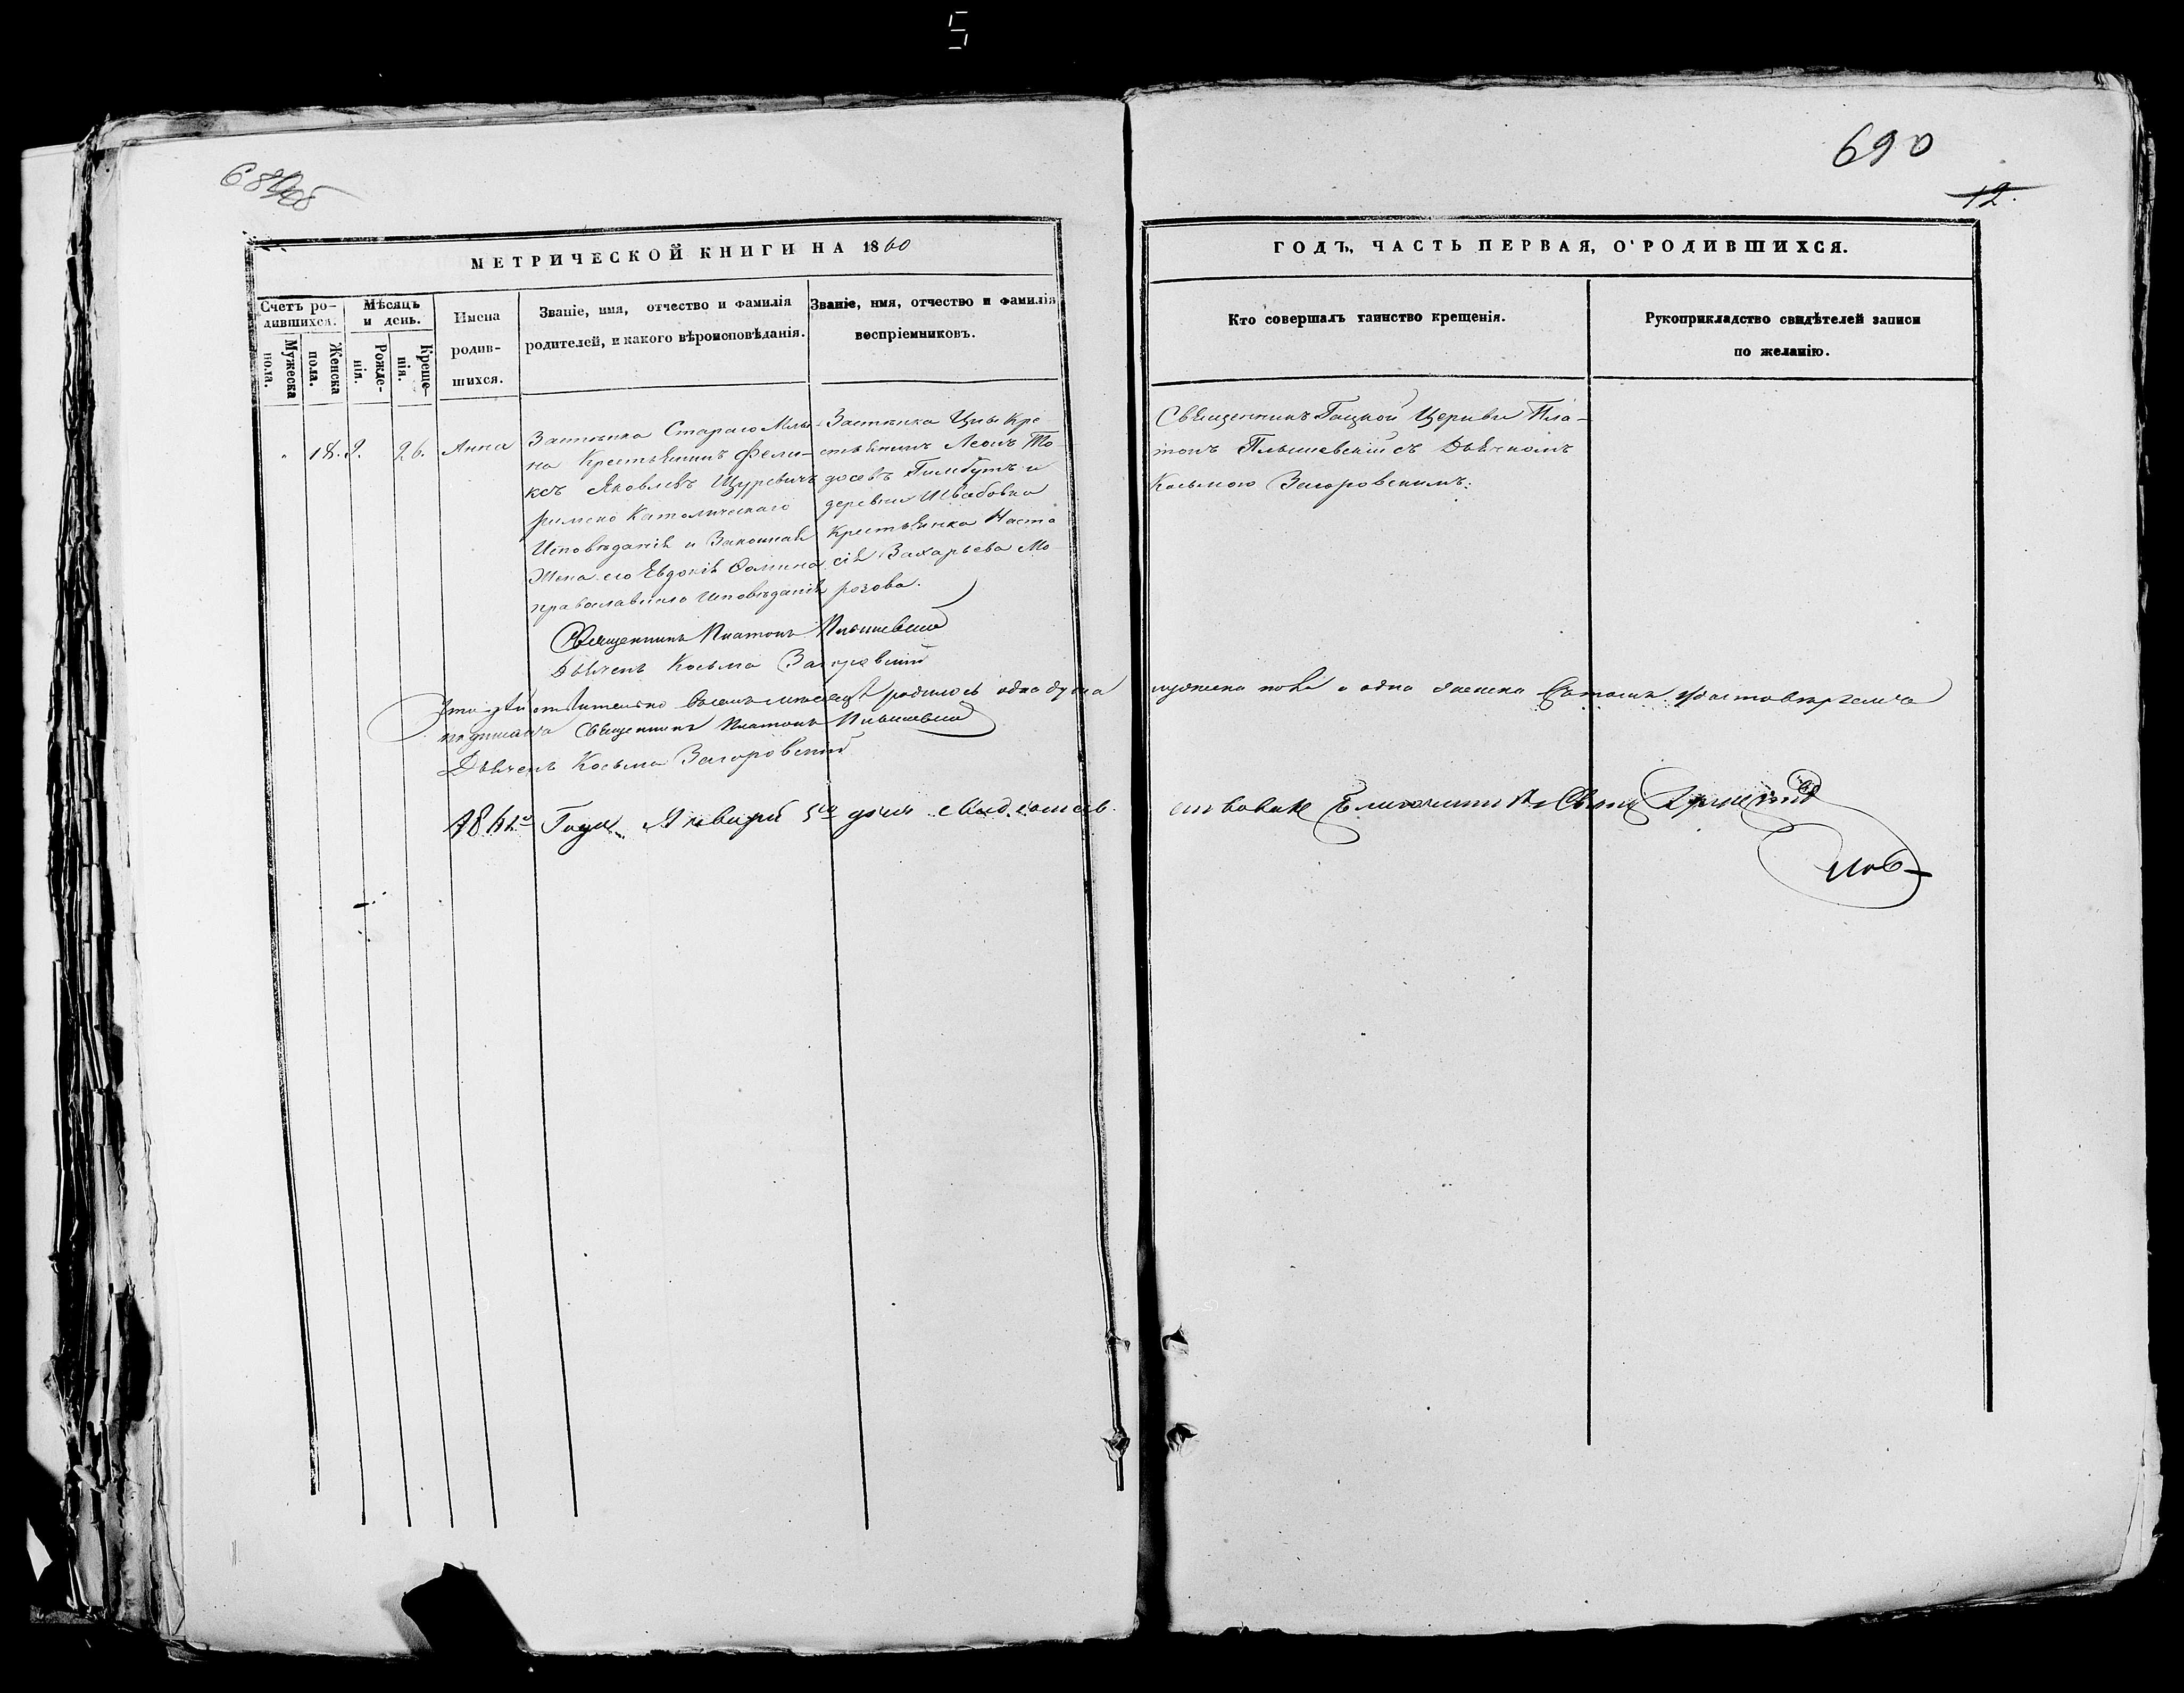 5
690
12.
МЕТРИЧЕСКОЙ КНИГИ НА 1860
ГОДЪ, ЧАСТЬ ПЕРВАЯ, О РОДИВШИХСЯ.
Счетъ ро-
дившихся.
Мужеска
пола.
Женска
пола.
Мѣсяцъ
и день.
Рожде-
нія.
Креще-
нія.
Имена
родив-
шихся.
Званіе, имя, отчество и фамилія
родителей, и какого вѣроисповѣданія.
Званіе, имя, отчество и фамилія
воспріемниковъ.
Кто совершалъ таинство крещенія.
Рукоприкладство свидѣтелей записи
по желанію.
18. 2. 26. Анна
Застѣнка Стараго Млы-
на Крестьянинъ Фели-
ксъ Яковлевъ Щуревичъ
римско Католическаго
Исповѣданія и Законная
Жена его Евдокія Фомина
православнаго Исповѣданія
Застѣнка Цны Кре
стьянинъ Леонъ
деревни Швабовки
Крестьянка Наста
сія Захарьева Мо
розова.
Священникъ Гацкой Церкви Пла-
тонъ Плышевскій съ Дьячкомъ
Козьмою Загоровскимъ:
Священникъ Платонъ Плышевскій
Дьячекъ Козьма Загоровскій
родилось одна душа
мужеска пола и одна женска
Священникъ Платонъ Плышевскій
Дьячекъ Козьма Загоровскій
Года Января 5го дня свидѣтель
ствовалъ Благочинный